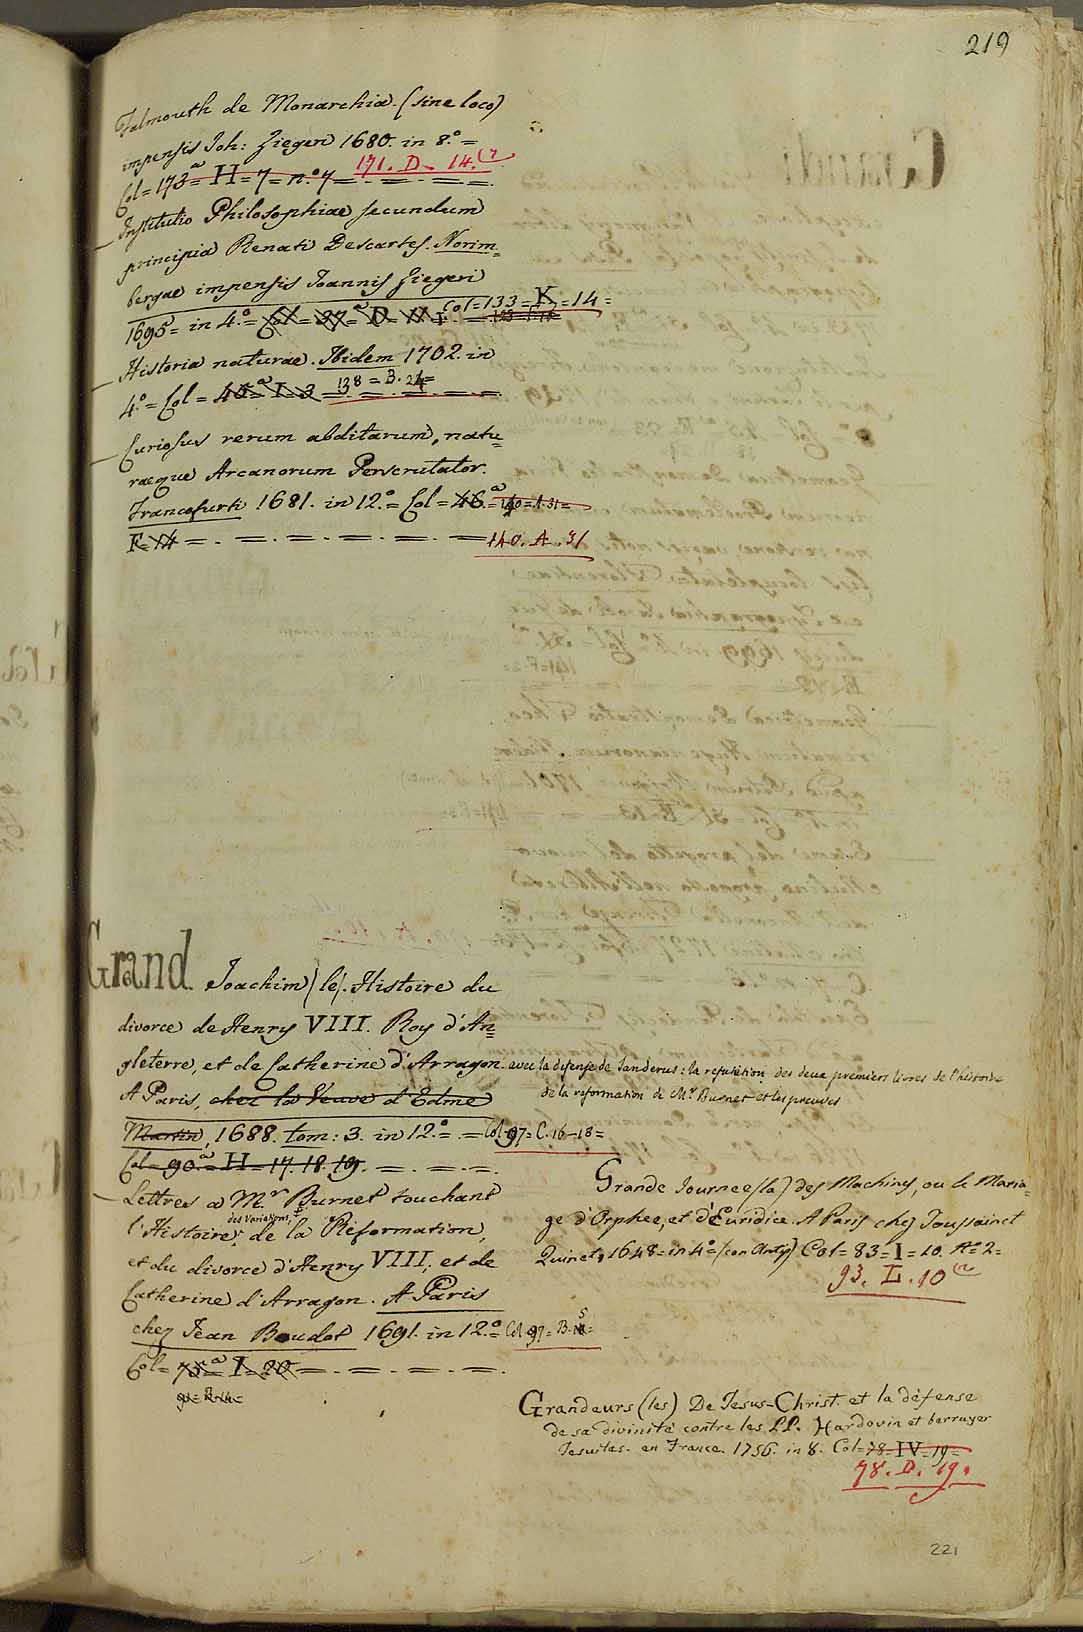 219
Falmouth de Monarchia. (sine loco)
impensis Joh: Ziegeri 1680. in 8.° =
171. D. 14.
Col = 173ª = H = 7 = n.° 7 = . = . = . =
Institutio Philosophiae secundum
principia Renati Descartes. Norim=
bergae impensis Joannis Ziegeri
Col = 133 = K = 14 =
1695 = in 4.° = Col = 37ª = D = 11
Historia naturae. Ibidem 1702. in
138 = B. 24 =
4.° = Col = 45ª = I = 3 = . = . = . = . =
Curiosus rerum abditarum, natu=
raeque Arcanorum Perscrutator.
Francofurti 1681. in 12.° = Col = 46.ª = 140 = A 31 =
F = 14 = . = . = . = . = . = 140. A. 31
Grand Joachim (le). Histoire du
divorce de Henry VIII. Roy d'An=
gleterre, et de Catherine d'Arragon. avec la defense de Sanderus: la refutation des deux premiers livres de l'histoire
de la reformation de Mr Burnet et les preuves
A Paris, chez la Veuve d'Edme
Martin, 1688. tom: 3. in 12.° = . = Col = 97 = C. 16 - 18 =
Col = 90.ª = H = 17. 18. 19. = . = . = .
Lettres a Mr Burnet touchant
des Variations,
l'Histoire de la Reformation,
et du divorce d'Henry VIII, et de
Catherine d'Arragon. A Paris
chez Jean Boudot 1691. in 12.° = Col. 97 = B. 5 =
Col = 75ª = I = 20 = . = . = . = . =
Grande Journee (la) des Machines, ou le Maria=
ge d'Orphee, et d'Euridice. A Paris chez Toussainct
Quinet, 1648 = in 4° = (con Antip) Col = 83 = I = 10. n.° 2 =
93. L. 10
Grandeurs (les) De Jesus-Christ. et la défense
de sa divinité contre les PP. Hardovin et berruyer
Jesuites. en France. 1756. in 8. Col = 78 = IV = 19 =
78. D. 19.
221